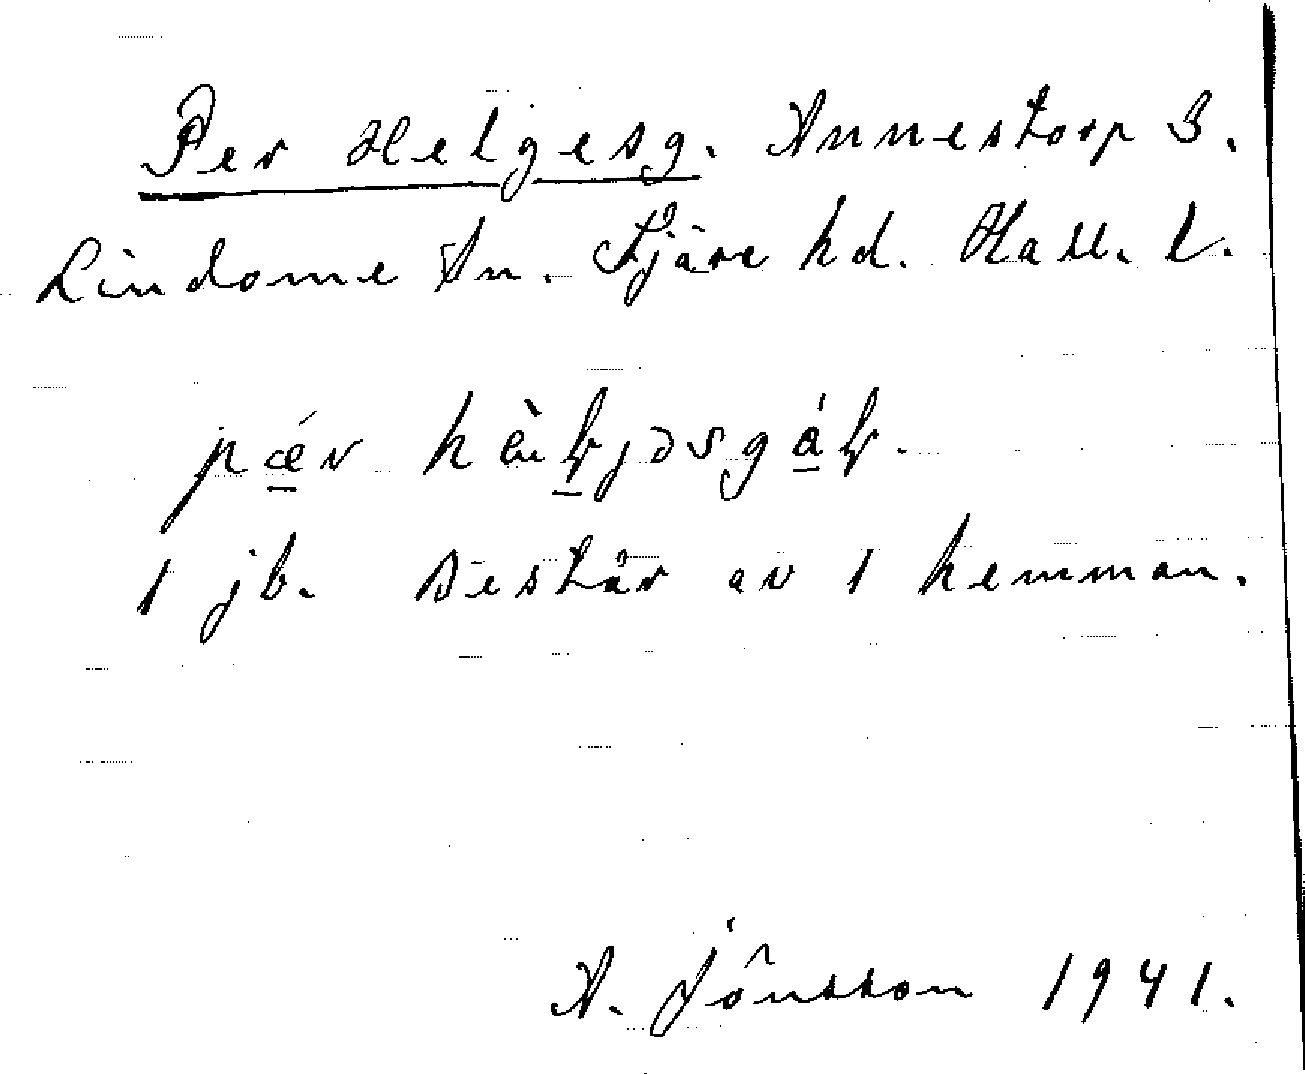 Per Helgesg. Annestorp 3.
Lindome sn. Fjäre hd. Hall. l.
pǽr
1 jb. Består av 1 hemman.
A. Jönsson 1941.